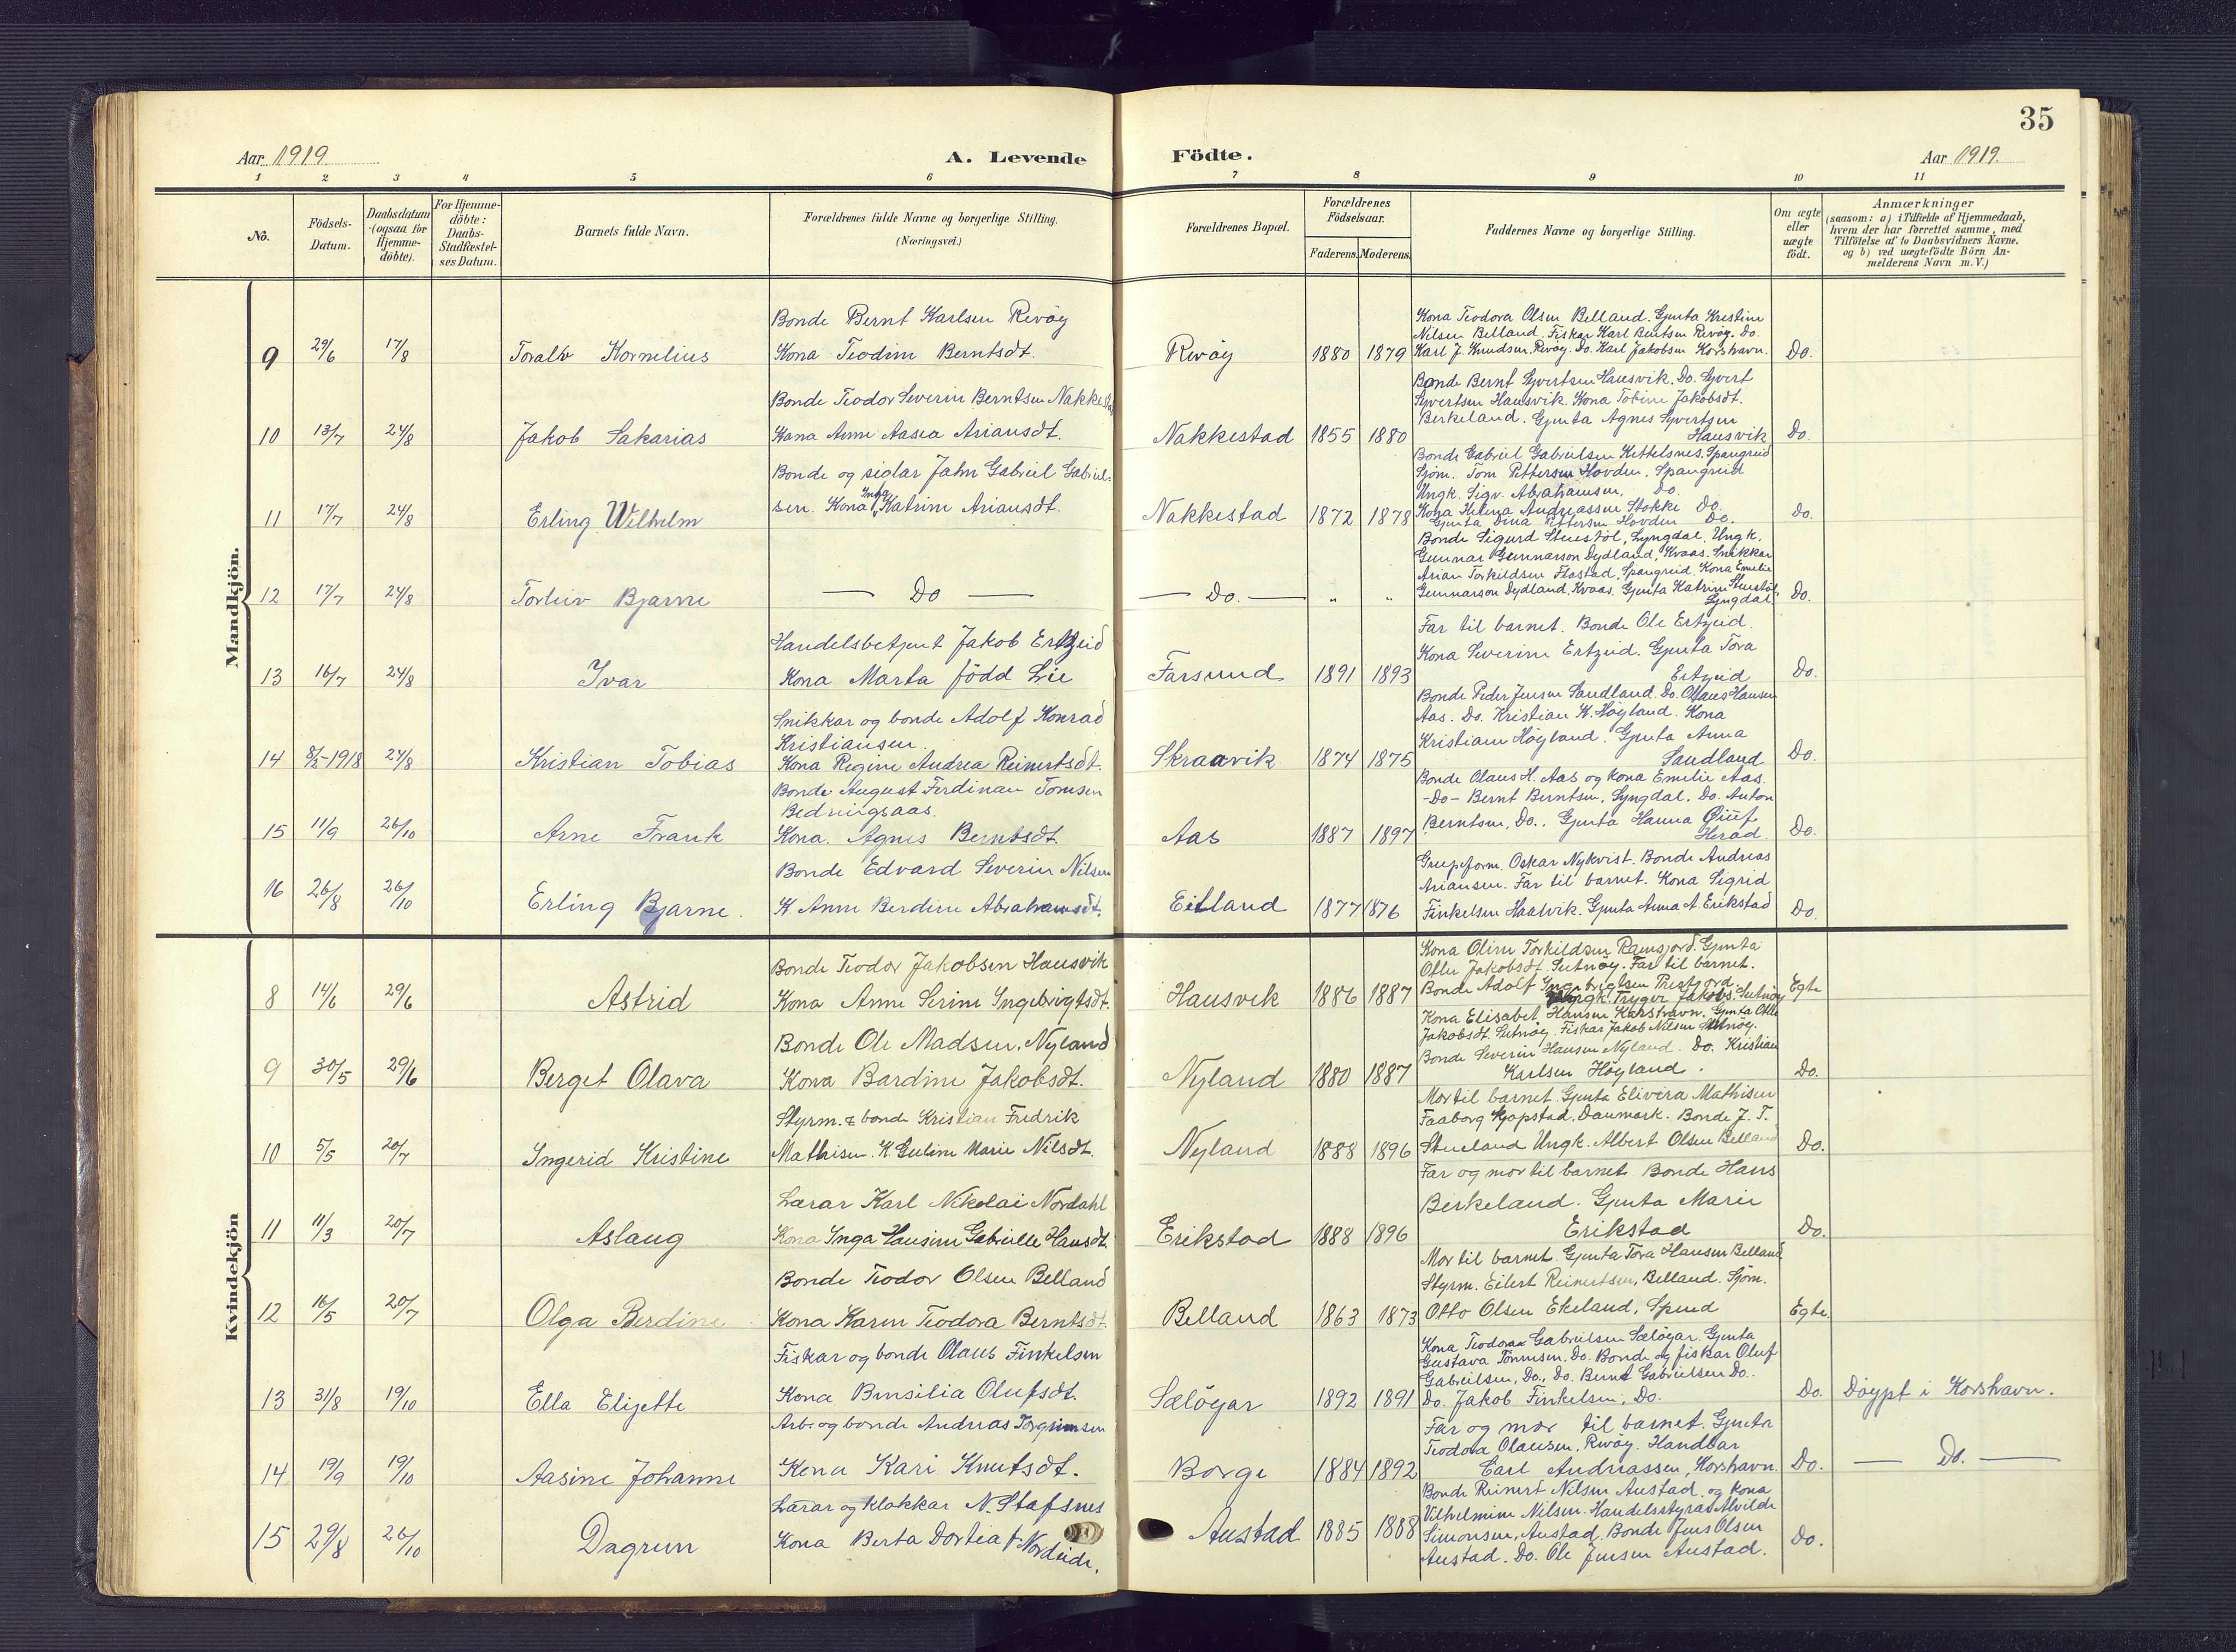 35
Aar 1919.
A. Levende
Födte.
Aar 1919.
1 2 3 4 5 6 7 8 9 10 11
No.
Födsels-
Datum.
Daabsdatum
(ogsaa for
Hjemme-
döbte).
For Hjemme-
döbte:
Daabs-
Stadfæstel-
ses Datum.
Barnets fulde Navn.
Forældrenes fulde Navne og borgerlige Stilling.
(Næringsvei.)
Forældrenes Bopæl.
Forældrenes
Födselsaar.
Faderens. Moderens.
Faddernes Navne og borgerlige Stilling.
Om ægte
eller
uægte
födt.
Anmærkninger
(saasom: a) i Tilfælde af Hjemmedaab,
hvem der har forrettet samme, med
Tilföielse af to Daabsvidners Navne.
og b) ved uægtefödte Börn An-
melderens Navn m.V.)
Mandkjön.
9 29/6 17/8 Toralv Kornelius
Bonde Bernt Karlsen Revöy
Kona Teodine Berntsdt.
Revöy 1880 1879
Kona Teodora Olsen Belland. Gjenta Kristine
Nilsen Belland. Fiskar Karl Berntsen Revöy. Do.
Karl J. Knudsen. Revöy. Do. Karl Jakobsen Korshavn.
Do.
10 13/7 24/8 Jakob Sakarias
Bonde Teodor Severin Berntsen Nakkestad
Kona Anne Aasea Ariansdt.
Nakkestad 1855 1880
Bonde Bernt Syvertsen Hausvik. Do. Syvert
Syvertsen Hausvik. Kona Tobine Jakobsdt.
Berkeland. Gjenta Agnes Syvertsen
Hausvik
Do.
11 17/7 24/8 Erling Wilhelm
Bonde og siglar Jahn Gabriel Gabriel-
sen. Kona Inga Katrine Ariansdt.
Nakkestad 1872 1878
Bonde Gabriel Gabrielsen Kettelsnes. Spangreid
Sjöm. Tom Pettersen Hovden, Spangreid
Ungk. Sigv. Abrahamsen, Do.
Kona Helena Andreassen Stokke Do.
Gjenta Dina Pettersen Hovden Do.
Do.
12 17/7 24/8 Torleiv Bjarne
— Do —
— Do. — " "
Bonde Sigurd Stuestöl, Lyngdal. Ungk.
Gunnar Gunnarson Dydland, Kvaas. Snikkar
Arian Torkildsen Flastad, Spangreid. Kona Emelie
Gunnarson Dydland, Kvaas. Gjenta Katrine Stuestöl,
Lyngdal
Do.
13 16/7 24/8 Ivar
Handelsbetjent Jakob Ertzeid
Kona Marta född Lie
Farsund 1891 1893
Far til barnet. Bonde Ole Ertzeid.
Kona Severine Ertzeid. Gjenta Tora
Ertzeid
Do.
14 8/2-1918 24/8 Kristian Tobias
Snikkar og bonde Adolf Konrad
Kristiansen.
Kona Regine Andrea Reinertsdt.
Skraavik 1874 1875
Bonde Peder Jensen Sandland. Do. Olaus Hansen
Aas. Do. Kristian K. Höyland. Kona
Kristiane Höyland. Gjenta Anna
Sandland
Do.
15 11/9 26/10 Arne Frank
Bonde August Ferdinan Tomsen
Bedringsaas.
Kona. Agnes Berntsdt.
Aas 1887 1897
Bonde Olaus H. Aas og kona Emelie Aas.
-Do- Bernt Berntsen, Lyngdal. Do. Anton
Berntsen, Do.. Gjenta Hanna
Herad.
Do.
16 26/8 26/10 Erling Bjarne.
Bonde Edvard Severin Nilsen
K. Anne Berdine Abrahamsdt.
Eitland 1877 1876
Oskar Nykvist. Bonde Andreas
Ariansen. Far til barnet. Kona Sigrid
Finkelsen Haalvik. Gjenta Anna A. Erikstad
Do.
Kvindekjön
8 14/6 29/6 Astrid
Bonde Teodor Jakobsen Hausvik
Kona Anne Serine Ingebrigtsdt.
Hausvik 1886 1887
Kona Oline Torkildsen Ramsfjord. Gjenta
Otlie Jakobsdt. Sutnöy. Far til barnet.
Bonde Adolf Ingebrigtsen Trestjord
Ungk. Trygve Jakobs. Sutnöy
Egte
9 30/5 29/6 Berget Olava
Bonde Ole Madsen, Nyland
Kona Bardine Jakobsdt.
Nyland 1880 1887
Kona Elisabet Hansen Korshavn. Gjenta Otlie
Jakobsdt. Sutnöy. Fiskar Jakob Nilsen Sutnöy.
Bonde Severin Hansen Nyland. Do. Kristian
Karlsen Höyland.
Do.
10 5/5 20/7 Ingerid Kristine
Styrm. & bonde Kristian Fredrik
Mathisen. K. Guline Marie Nilsdt.
Nyland 1888 1896
Mor til barnet. Gjenta Elivera Mathisen
Faaborg Kjøpstad, Danmark. Bonde J. T.
Stueland Ungk. Albert Olsen Belland
Do.
11 11/3 20/7 Aslaug
Lærar Karl Nikolai Nordahl
Kona Inga Hansine Gabrielle Hansdt.
Erikstad 1888 1896
Far og mor til barnet Bonde Hans
Birkeland. Gjenta Marie
Erikstad
Do.
12 16/5 20/7 Olga Berdine
Bonde Teodor Olsen Belland
Kona Karen Teodora Berntsdt.
Belland 1863 1873
Mor til barnet. Gjenta Tora Hansen Belland
Styrm. Eilert Reinertsen, Belland. Sjöm.
Otto Olsen Ekeland, Spind
Egte.
13 31/8 19/10 Ella Elijette
Fiskar og bonde Olaus Finkelsen
Kona Bensilia Olufsdt.
Sælöyar 1892 1891
Kona Teodora Gabrielsen Sælöyar. Gjenta
Gustava Tönnesen, Do. Bonde og fiskar Oluf
Gabrielsen, Do., Do. Bernt Gabrielsen Do..
Do. Jakob Finkelsen, Do.
Do. Döypt i Korshavn.
14 19/9 19/10 Aasine Johanne
Arb. og bonde Andreas Torgrimsen
Kona Kari Knutsdt.
Borge 1884 1892
Far og mor til barnet. Gjenta
Teodora Olausen, Revöy. Handlar
Carl Andreassen, Korshavn.
Do. — Do. —
15 29/8 26/10 Dagrun
Lærar og klokkar N. Stafsnes
Kona Berta Dortea f. Nordeide.
Austad 1885 1888
Bonde Reinert Nilsen Austad og kona
Vilhelmine Nilsen. Handelsstyrar Alvilde
Simonsen, Austad, Bonde Jens Olsen
Austad. Do. Ole Jensen Austad.
Do.